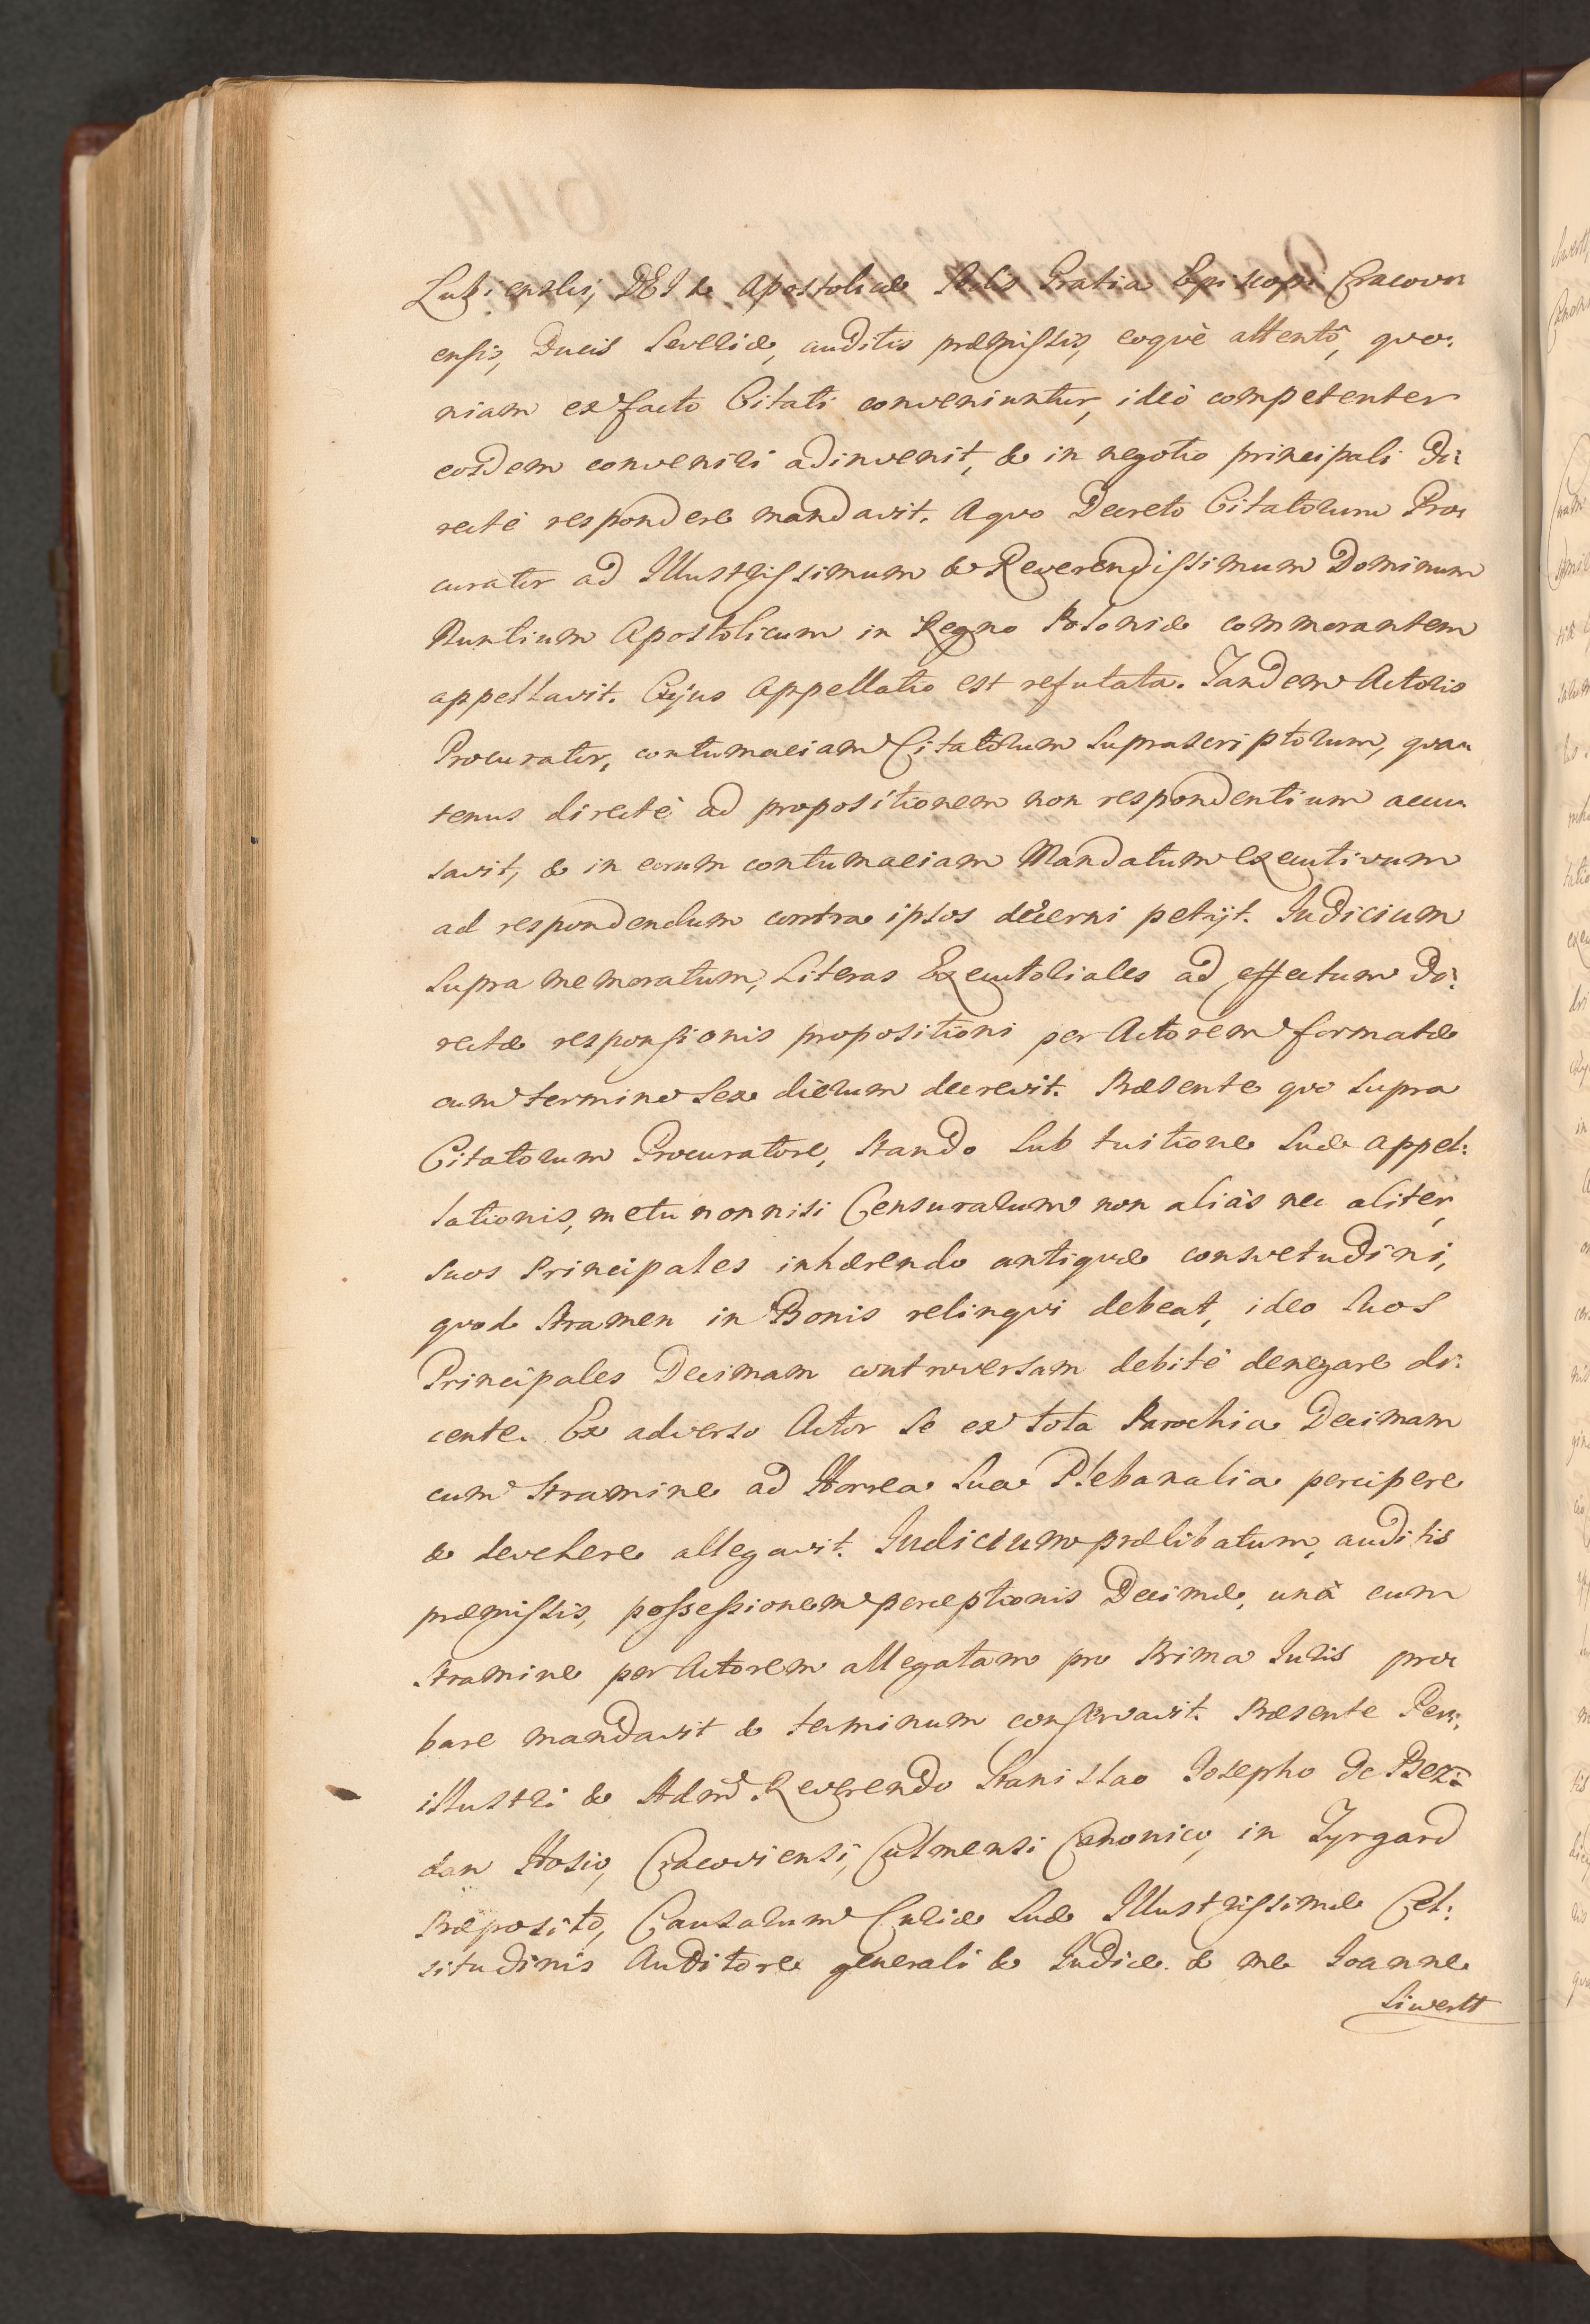 Lubienski, DEI & Apostolicæ Sedis Gratia Episcopi Cracovi
ensis, Ducis Severiæ, auditis præmissis, eoquè attentô, quo:
niam ex facto Citati conveniuntur, ideò competenter
eosdem conveniri adinvenit, & in negotio principali di:
rectè respondere mandavit. A quo Decreto Citatorum Pro:
curator ad Illustrissimum & Reverendissimum Dominum
Nuntium Apostolicum in Regno Poloniæ commorantem
appellavit. Cujus Appellatio est refutata. Tandem Actoris
Procurator, contumaciam Citatorum suprascriptorum, qua:
tenus directè ad propositionem non respondentium accu:
savit, & in eorum contumaciam Mandatum executivum
ad respondendum contra ipsos decerni petijt. Judicium
supra memoratum, Literas Executoriales ad effectum di:
rectæ responsionis propositioni per Actorem formatæ
cum termino sex dierum decrevit. Præsente quo supra
Citatorum Procuratore, stando sub tuitione suæ appel:
lationis, metu nonnisi Censurarum non aliàs nec aliter,
suos Principales inhærendo antiquæ consvetudini,
quod stramen in Bonis relinqvi debeat, ideo suos
Principales Decimam controversam debitè denegare di:
cente. Ex adverso Actor se ex tota Parochia Decimam
cum stramine ad Horrea sua Plebanalia percipere
& devehere allegavit. Judicium prælibatum, auditis
præmissis, possessionem perceptionis Decimæ, unà cum
stramine per Actorem allegatam pro Prima Juris pro:
bare mandavit & terminum conservavit. Præsente Per:
illustri & Admd Reverendo Stanislao Josepho de Bez:
dan Hosio, Cracoviensi, Culmensi Canonico, in Tyrgard
Præposito, Causarum Curiæ Suæ Illustrissimæ Cel:
situdinis Auditore generali & Judice & me Joanne
Siwertt